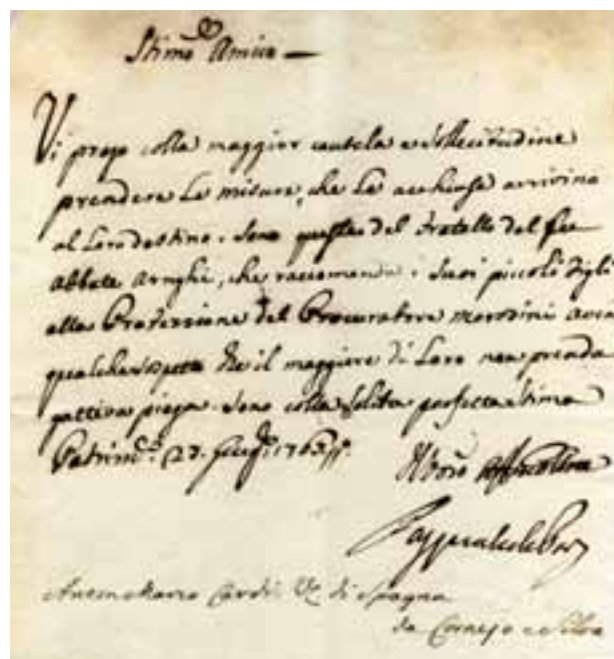 Stimo Amico
Vi prego colla maggior cautela e sollecitudine
prendere le misure, che le acchiuse arrivino
al loro destino. Sono queste del fratello del fu
Abbate che raccomanda i suoi piccoli figli
alla Protezzione del Procuratore Morosini
qualche che il maggiore di loro non prenda
cattiva piega. Sono colla solita perfetta stima
27. 1765
Vostro
Antonmaria di Spagna
da Cornejo e Silva